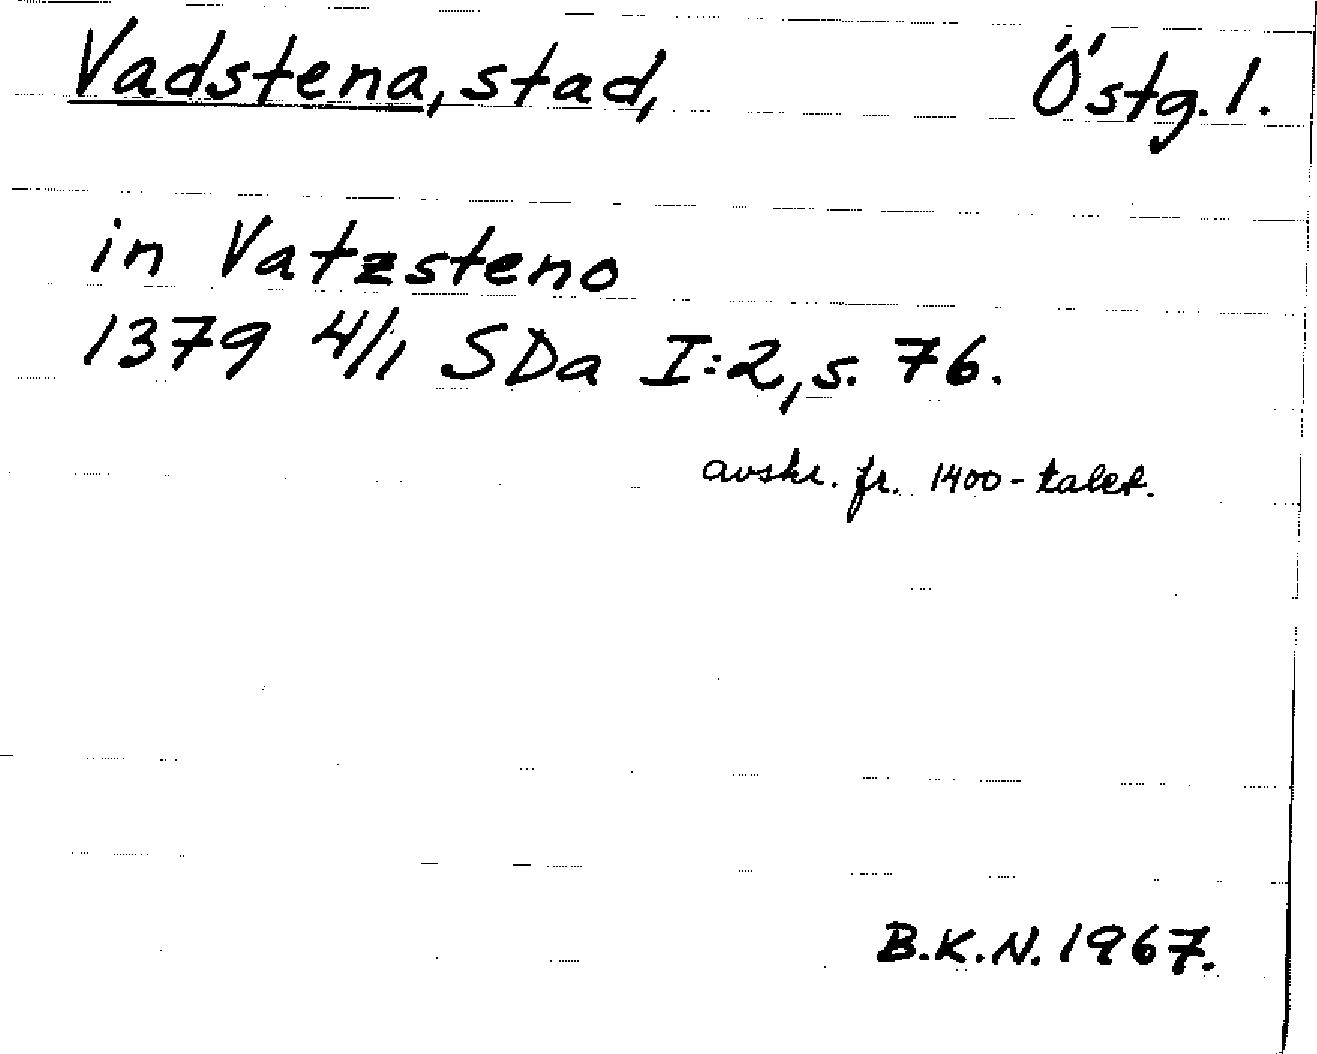 Vadstena, stad, Östg. l.
in Vatzsteno
1379 4/1 SDa I:2, s. 76.
avskr. fr. 1400-talet.
B.K.N. 1967.